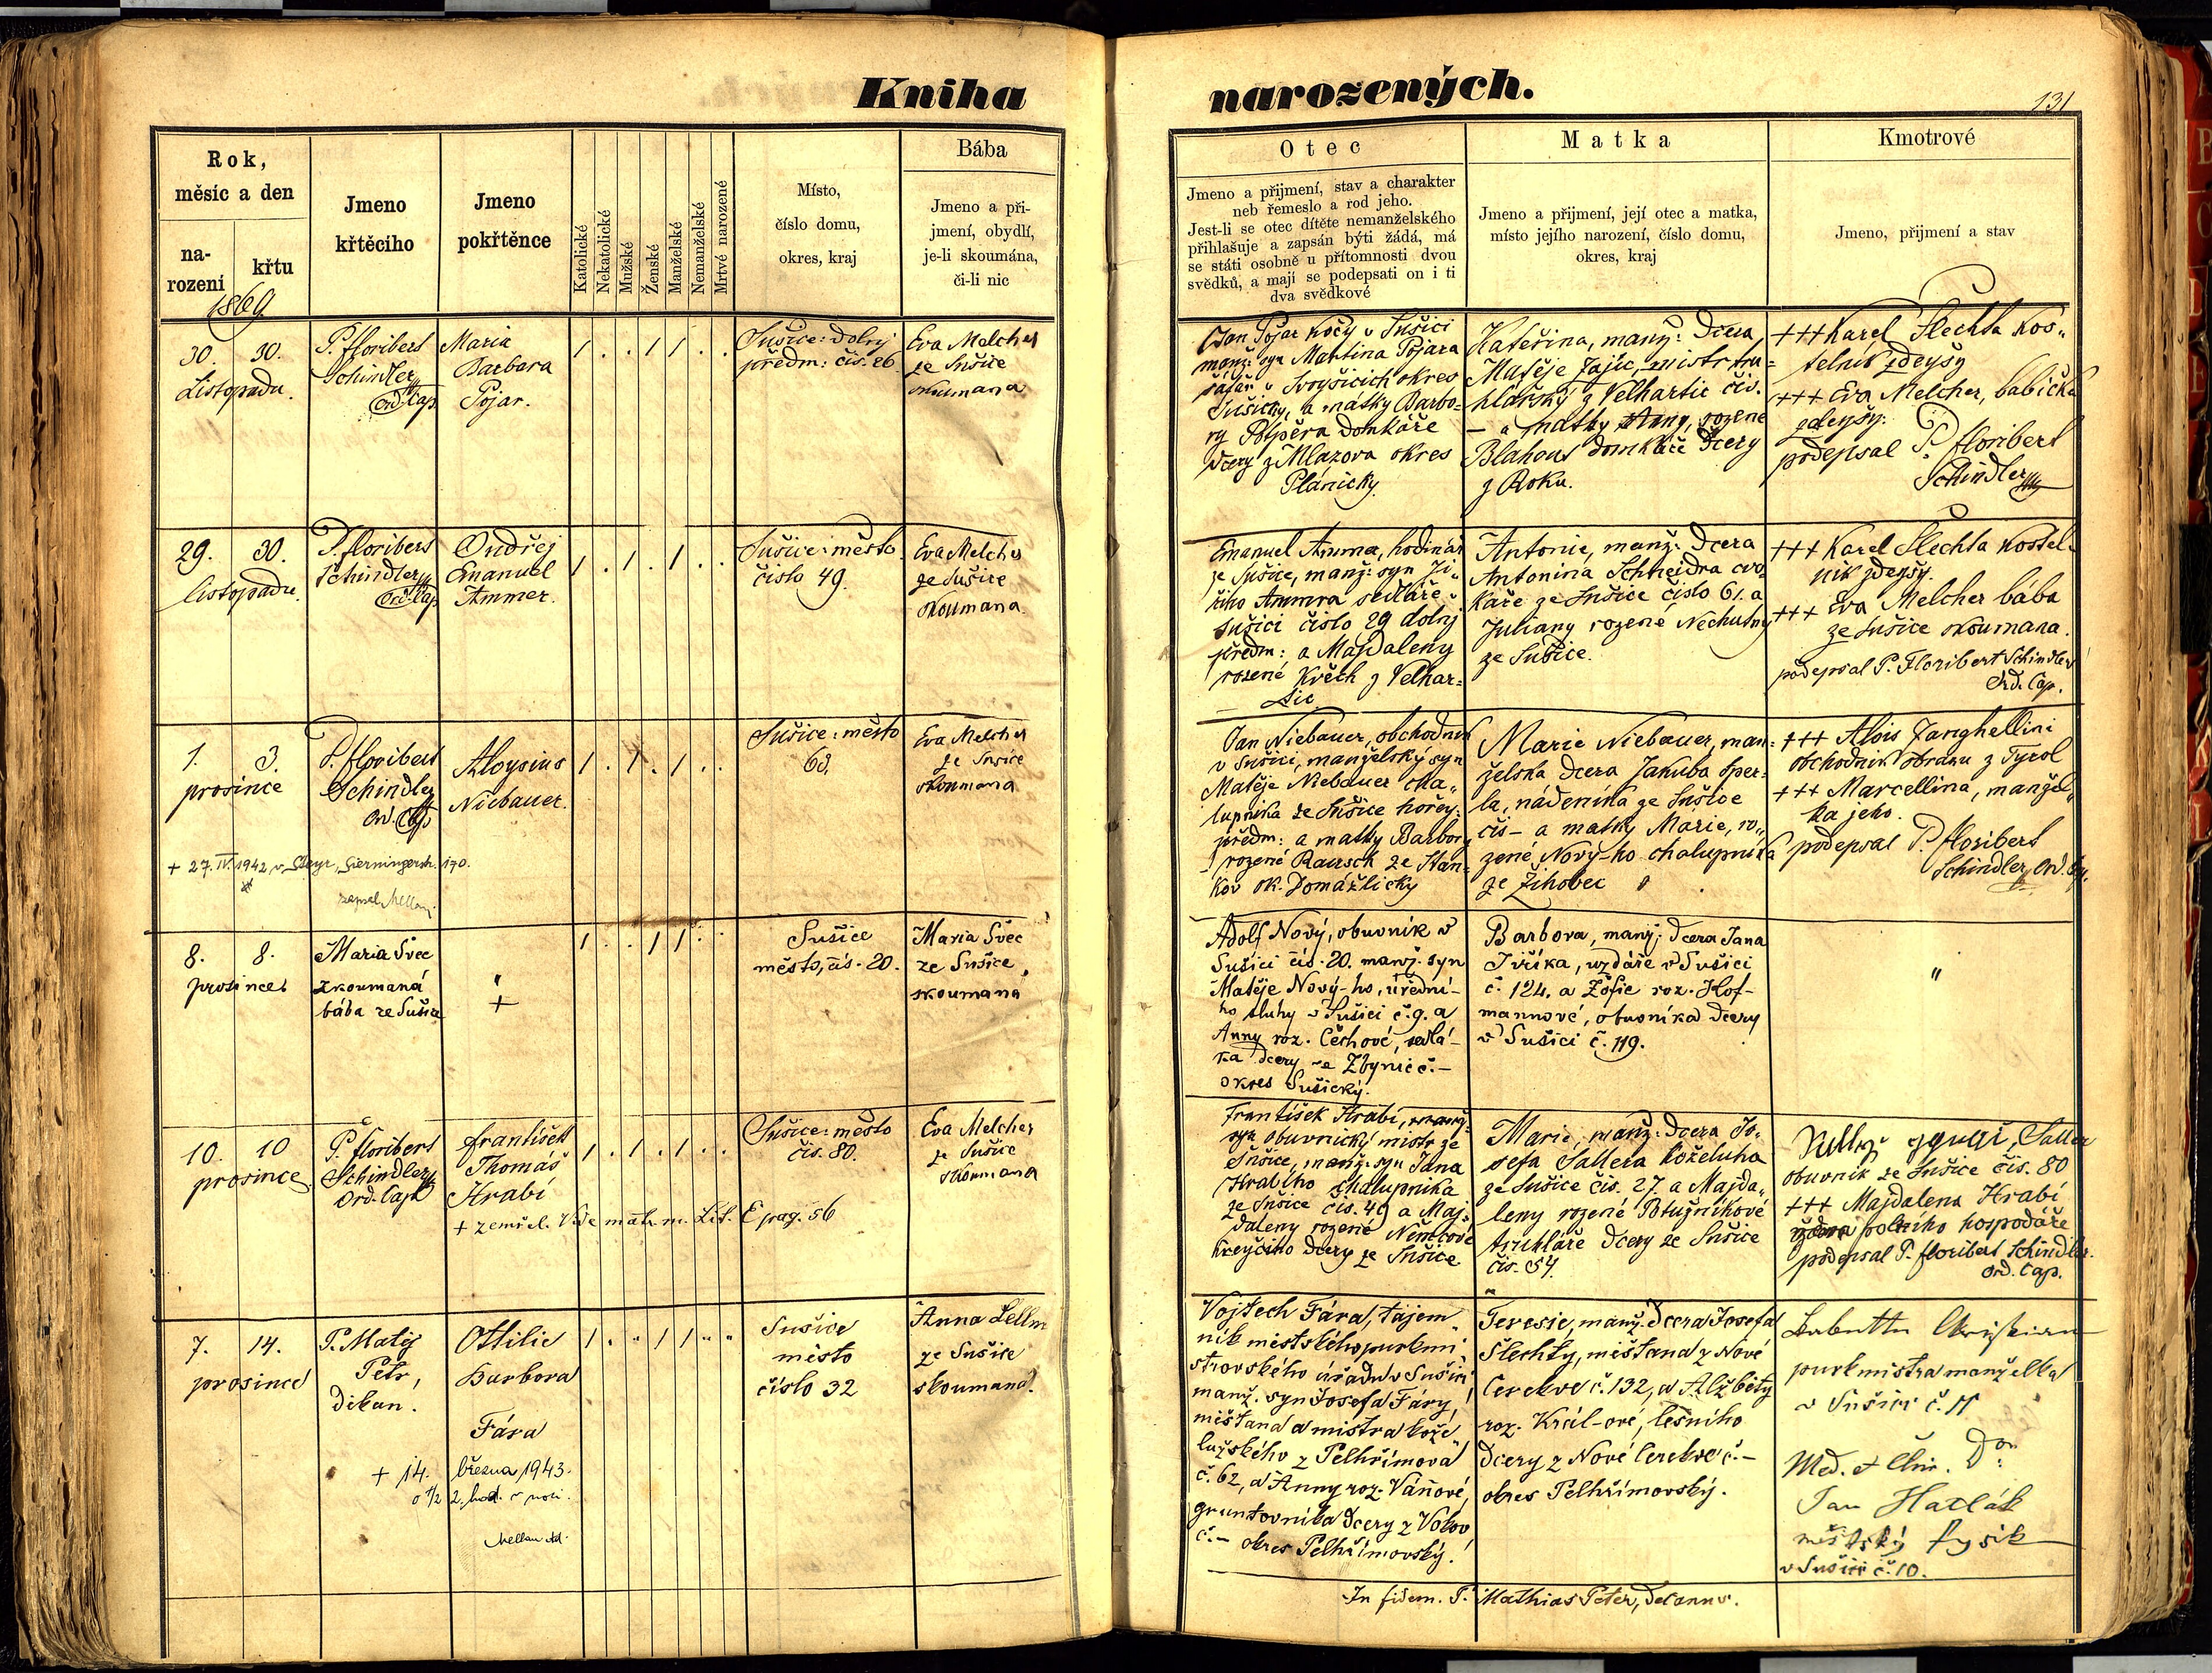 Kniha
narozených.
131
Rok,
měsíc a den
na-
rození
křtu
1869
Jmeno
křtěcího
Jmeno
pokřtěnce
Katolické
Nekatolické
Mužské
Ženské
Manželské
Nemanželské
Mrtvé narozené
Místo,
číslo domu,
okres, kraj
Bába
Jmeno a při-
jmení, obydlí,
je-li skoumána,
či-li nic
Otec
Jmeno a přijmení, stav a charakter
neb řemeslo a rod jeho.
Jest-li se otec dítěte nemanželského
přihlašuje a zapsán býti žádá, má
se státi osobně u přítomnosti dvou
svědků, a mají se podepsati on i ti
dva svědkové
Matka
Jmeno a přijmení, její otec a matka,
místo jejího narození, číslo domu,
okres, kraj
Kmotrové
Jmeno, přijmení a stav
30. 30.
Listopadu.
P. floribert
Schindler
Ord. Cap.
Maria
Barbora
Pojar.
1 . . 1 1 . .
Sušice: Dolej
předm: čis. 26.
Eva Melcher
ze Sušice
skoumana
Jan Pojar Kočy v Sušici
manž: syn Martina Pojara
šafáře v Svoyšicich okres
Sušicky, a matky Barbo-
ry Potpěra domkáře
dcery z Mlazova okres
Plánicky.
Kateřina, manž: Dcera
Matěje Zajíc, mistr tru-
hlářský z Velhartic čis.
– a matky Anny, rozene
Blahout domkáře Dcery
z Roku.
+++ Karel Šlechta Kos-
telnik zdeyšy
+++ Eva Melcher, babička
zdeyšy.
podepsal P. floribert
Schindler
29. 30.
listopadu.
P. floribert
Schindler
Ord. Cap
Ondřej
Emanuel
Ammer.
1 . 1 . 1 . .
Sušice: město
číslo 49.
Eva Melcher
ze Sušice
skoumana.
Emanuel Ammer, hodinář
ze Sušice, manž: syn Ji-
řiho Ammra sedláře v
Sušici číslo 29 dolej
předm: a Majdaleny
rozené Květh z Velhar-
tic
Antonie, manž: Dcera
Antonina Schneidra cvo-
káře ze Sušice číslo 61. a
Juliany rozené Nechutny
ze Sušice.
+++ Karel Šlechta Kostel-
nik zdeyšy.
+++ Eva Melcher bába
ze Sušice skoumana.
podepsal P. Floribert Schindler
Ord. Cap.
1. 3.
prosince
P. floribert
Schindler
Ord. Cap
Aloysius
Niebauer.
1 . 1 . 1 . .
Sušice: město
63.
Eva Melcher
ze Sušice
skoumana
+ 27. IV. 1942 v Steyr, Sierningerstr. 170.
zapsal Mellan.
Jan Niebauer, obchodnik
v Sušici, manželský syn
Matěje Niebauer cha-
lupnika ze Sušice hořey:
předm: a matky Barbory
rozené Rausch ze Stan-
kov ok. Domážlicky
Marie Niebauer, man-
želska Dcera Jakuba Sper-
la, nádeníka ze Sušice
čis – a matky Marie, ro-
zené Nový-ho chalupníka
ze Žihobec
+++ Alois Zanghellini
obchodnik obrazu z Tyrol
+++ Marcellina, manžel-
ka jeho.
podepsal P. floribert
Schindler, Ord. Cap.
8. 8.
prosince
Maria Švec
zkoumaná
bába ze Sušice
"
+
1 . . 1 1 . .
Sušice
město, čís. 20.
Maria Švec
ze Sušice,
skoumana
Adolf Nový, obuvník v
Sušici čís. 20. manž. syn
Matěje Nový-ho, úřední-
ho sluhy v Sušici č. 9. a
Anny roz. Čechové, sedlá-
ka dcery ze Zbynic č. –
okres Sušický.
Barbora, manž. dcera Jana
Jiříka, uzdáře v Sušici
č. 124. a Žofie roz. Hof-
mannové, obuvníka dcery
v Sušici č. 119.
"
10. 10
prosince.
P. floribert
Schindler
Ord. Cap
František
Thomáš
Hrabí
1 . 1 . 1 . .
Sušice: město
čis. 80.
Eva Melcher
ze Sušice
skoumana
+ zemřel. Vide matr. m. Lit. E pag. 56
František Hrabí,
obuvnický mistr ze
Sušice, manž: syn Jana
Hrabího chalupnika
ze Sušice čis. 49 a Maj-
daleny rozené Němcové
Kreyčiho dcery ze Sušice
Marie, manž: Dcera Jo-
sefa Sallera koželuha
ze Sušice čis. 27. a Majda-
leny rozené Potužníkové
truhláře dcery ze Sušice
čis. 54.
Saller
obuvnik ze Sušice čís. 80
+++ Majdalena Hrabí
polního hospodáře
podepsal P. floribert Schindler
Ord. Cap.
7. 14.
prosince
P. Matěj
Petr,
děkan.
Ottilie
Barbora
Fára
1 . " 1 1 " "
Sušice
město
číslo 32
Anna Lellm
ze Sušice
skoumana.
+ 14. března 1943.
o ½ 2. hod. v noci.
Mellan
Vojtech Fára, tajem-
ník městského purkmi-
strovského úřadu v Sušici
manž. syn Josefa Fáry,
měšťana a mistra kože-
lužského z Pelhřimova
č. 62, a Anny roz. Váňové,
gruntovníka dcery z Volov
č. – okres Pelhřimovský.
Teresie, manž. dcera Josefa
Šlechty, měšťana z Nové
Cerekve č. 132, a Alžběty
roz. Král-ové, lesního
dcery z Nové Cerekve č. –
okres Pelhřimovský.
purkmistra manželka
v Sušici č. 11
Med. et Chir. Dor:
Jan Hatlák
městský fysik
v Sušici č. 10.
In fidem. P. Mathias Peter, Decanus.